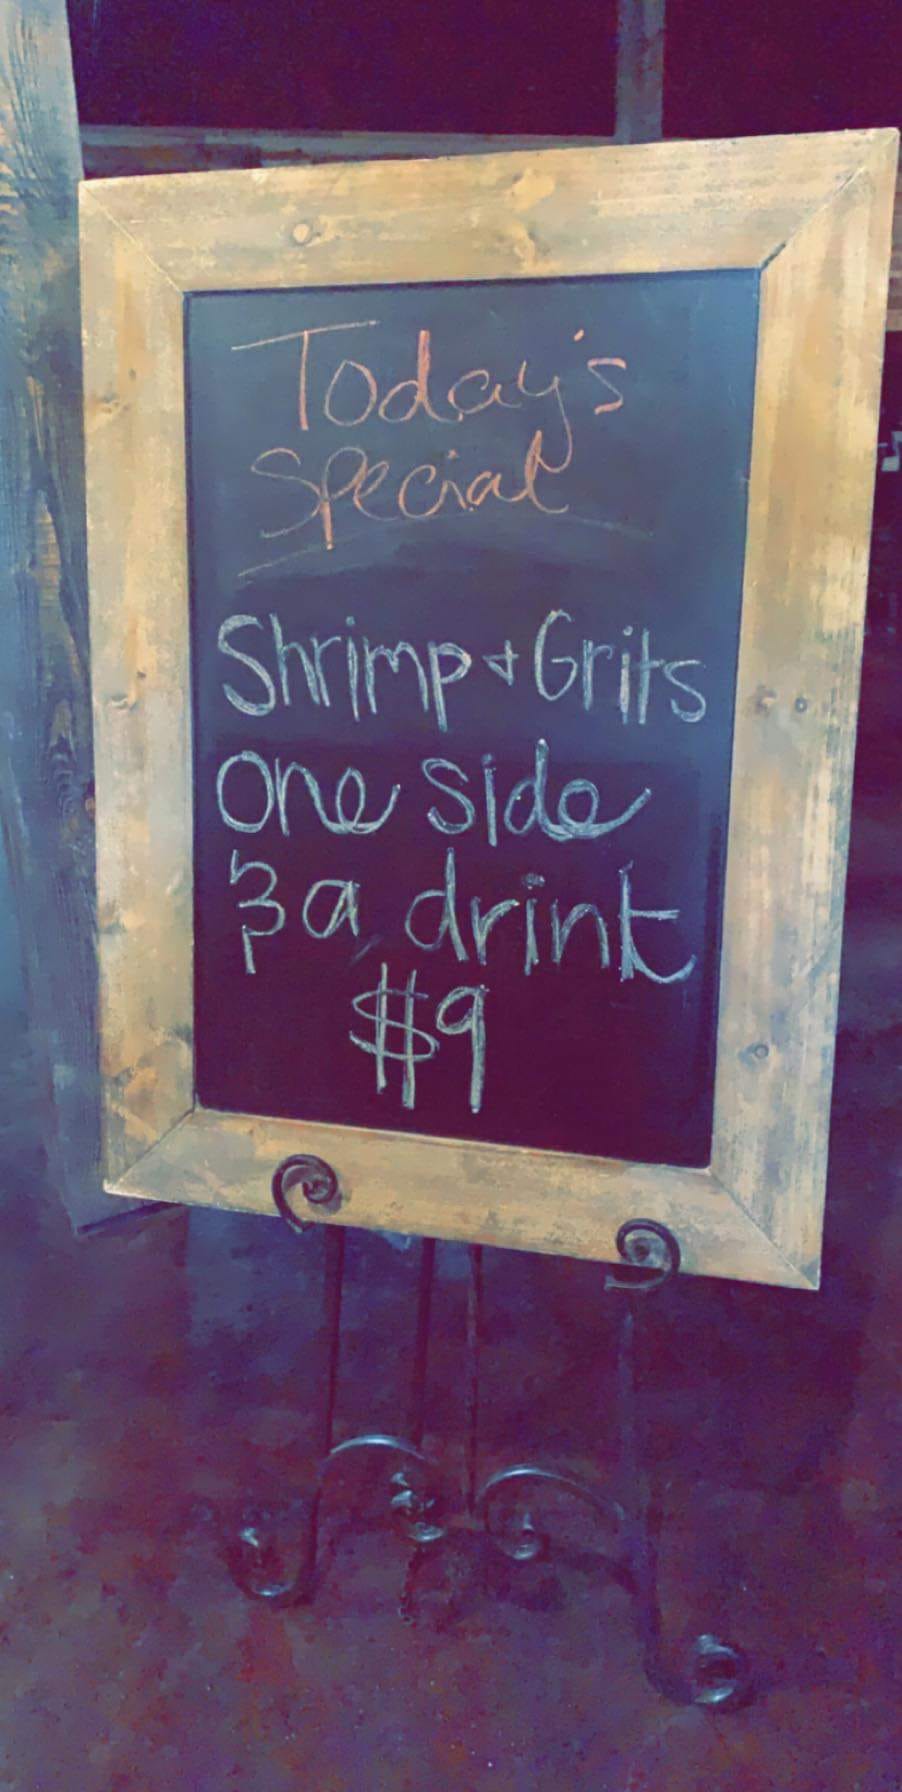 Today's
Special
Shrimp + Grits
One side
& a drink
$9